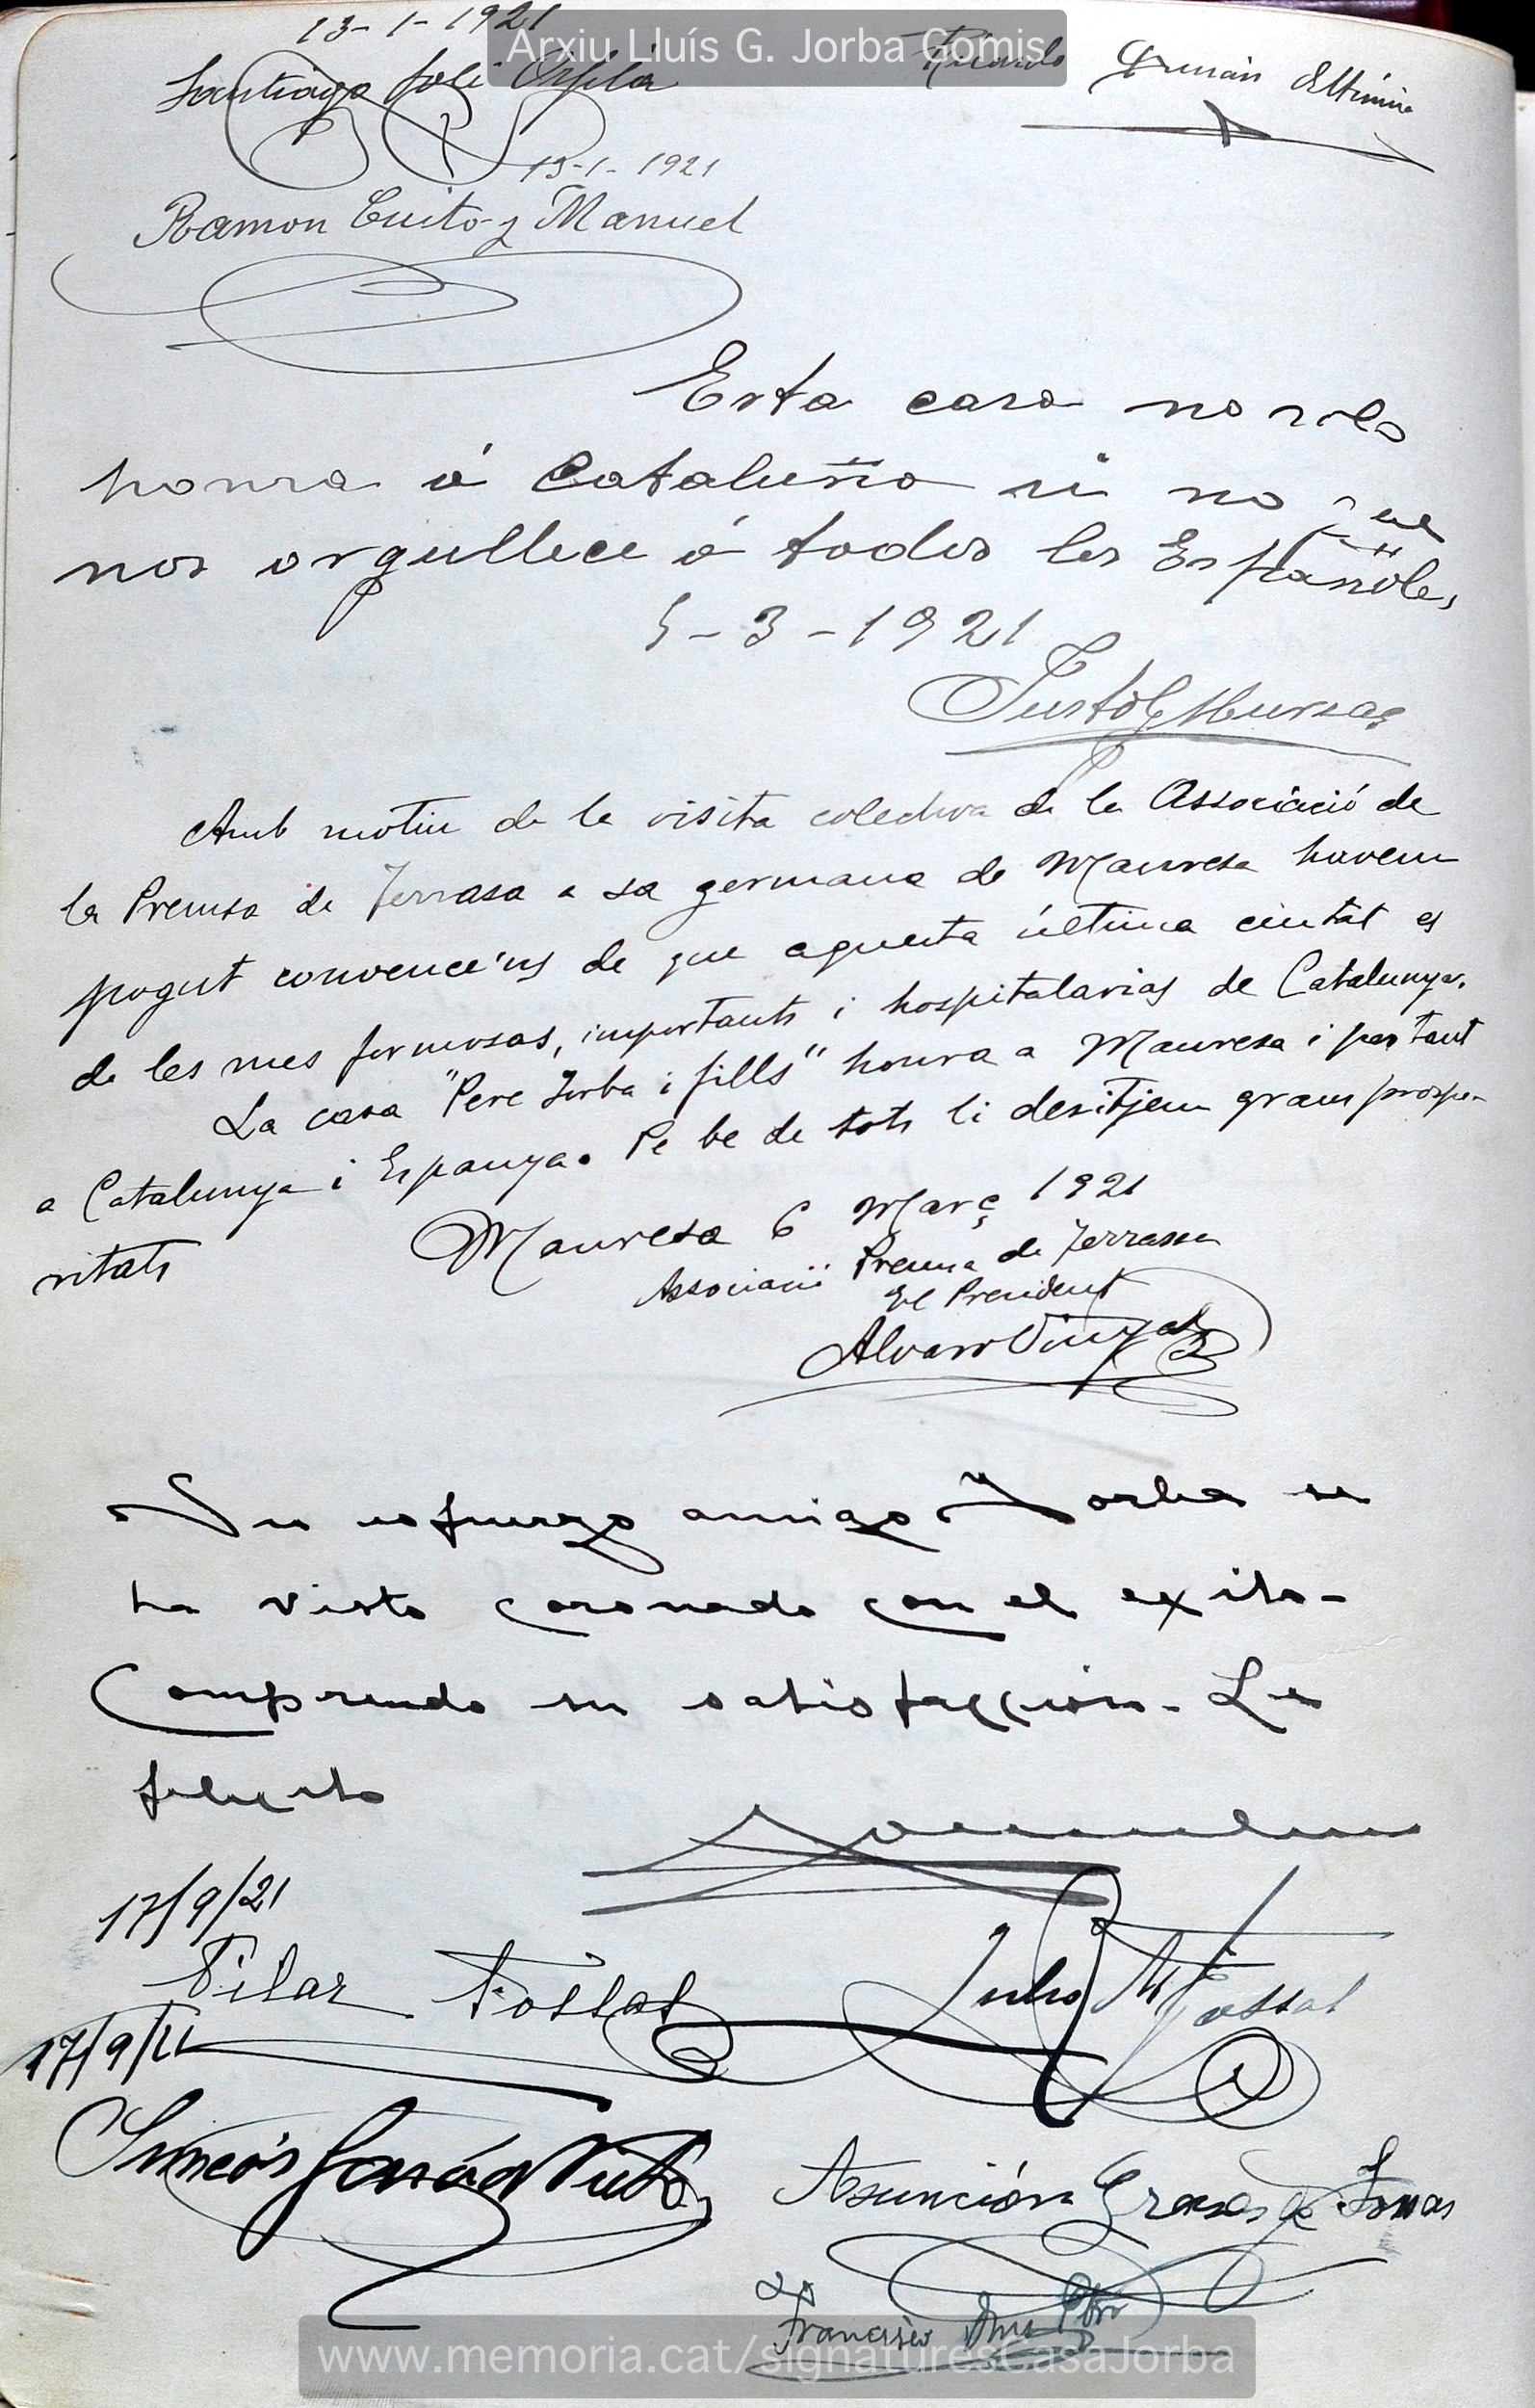 13-1-1921
Arxiu Lluís G. Jorba Gomis
Ricardo
Santiago
13-1-1921
Ramon Cuito y Manuel
Esta casa no solo
honra á Cataluña si no que
nos orgullece á todos los Españoles
5-3-1921
Justo
Amb motiu de la visita colectiva de la Associació de
la Premsa de Terrasa a sa germana de Manresa havem
pogut convence'ns de que aquesta última ciutat es
de les mes formosas, importants i hospitalarias de Catalunya.
La casa "Pere Jorba i fills" honra a Manresa i per tant
a Catalunya i Espanya. Pe be de tots li desitjem grans prospe-
ritats
Manresa 6 Març 1921
Associació Premsa de Terrassa
El President
Alvaro Vinyals
Su esfuerzo amigo Jorba se
ha visto coronado con el exito-
Comprendo su satisfacción- Le
felicito
17/9/21
Pilar Fossas
Julio M Fossas
17/9/21
Simeón García
Asunción Grases de
Francisco
www.memoria.cat/signaturesCasaJorba